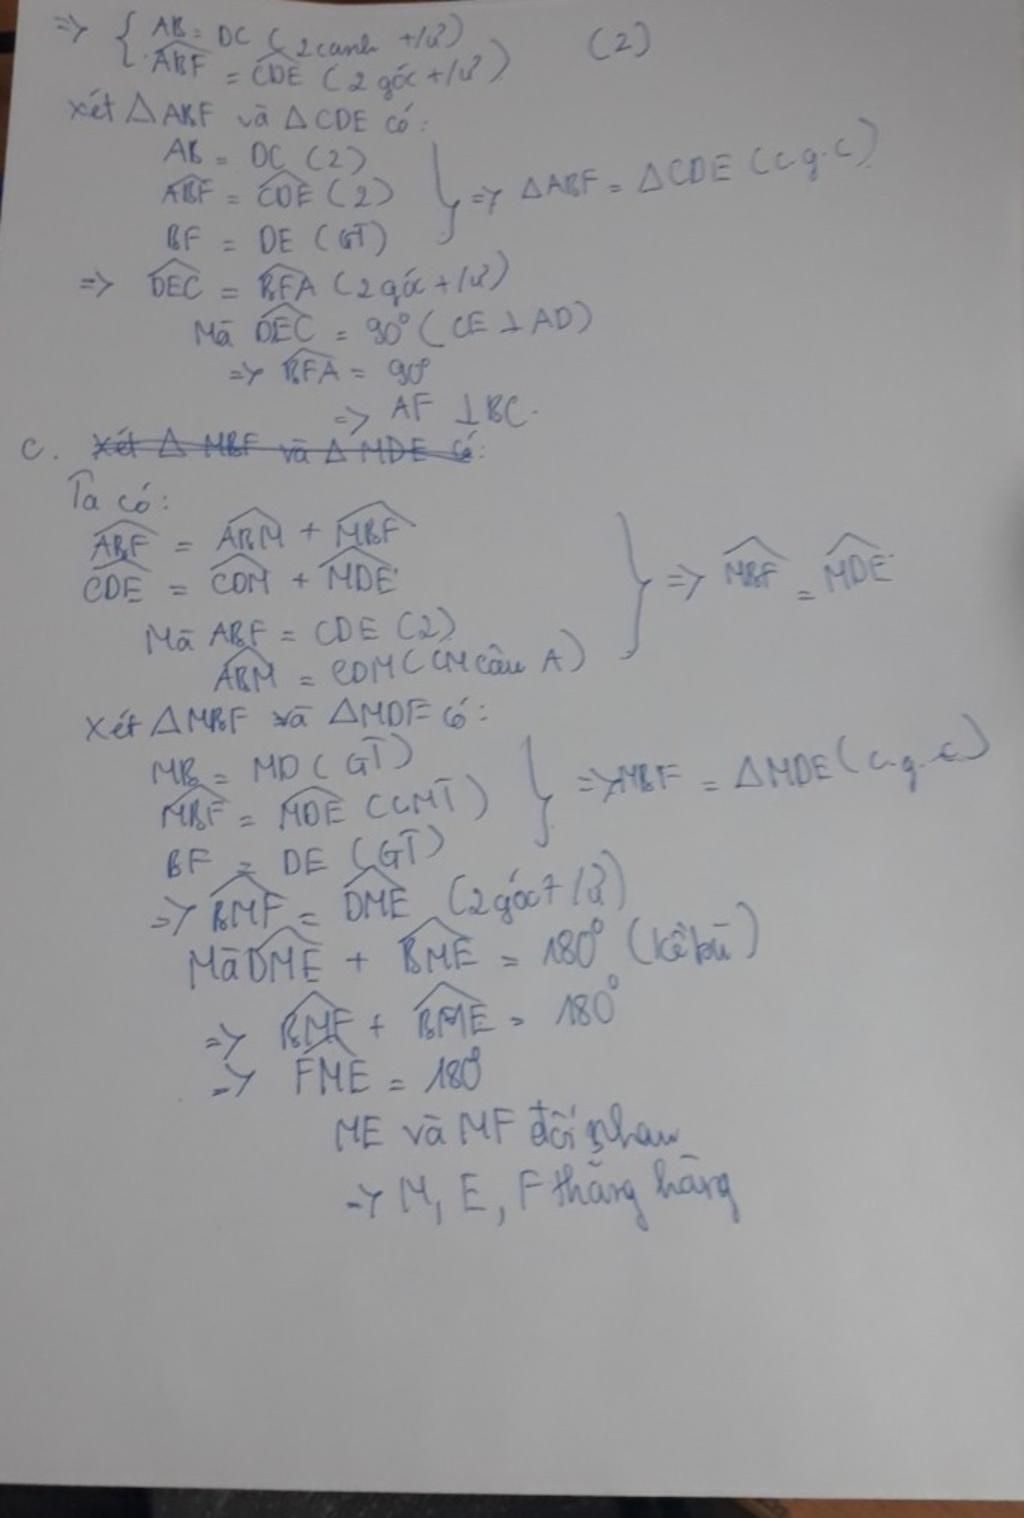 => { AB = DC (2 canh t/ư)
ABF = CDE (2 góc t/ư) (2)
Xét △ABF và △CDE có:
AB = DC (2)
ABF = CDE (2) } => △ABF = △CDE (c.g.c)
BF = DE (GT)
=> DEC = BFA (2 góc t/ư)
Mà DEC = 90° (CE ⊥ AD)
=> BFA = 90°
=> AF ⊥ BC.
c. Xét △ MBF và △ MDE có:
Ta có:
ABF = ABM + MBF
CDE = CDM + MDE } => MBF = MDE
Mà ABF = CDE (2)
ABM = CDM (CM câu A)
Xét △MBF và △MDE có:
MB = MD (GT)
MBF = MDE (CMT) } => MBF = △MDE (c.g.c)
BF = DE (GT)
=> BMF = DME (2 góc t/ứ)
Mà DME + BME = 180° (kề bù)
=> BMF + BME = 180°
=> FME = 180°
ME và MF đối nhau
=> M, E, F thẳng hàng